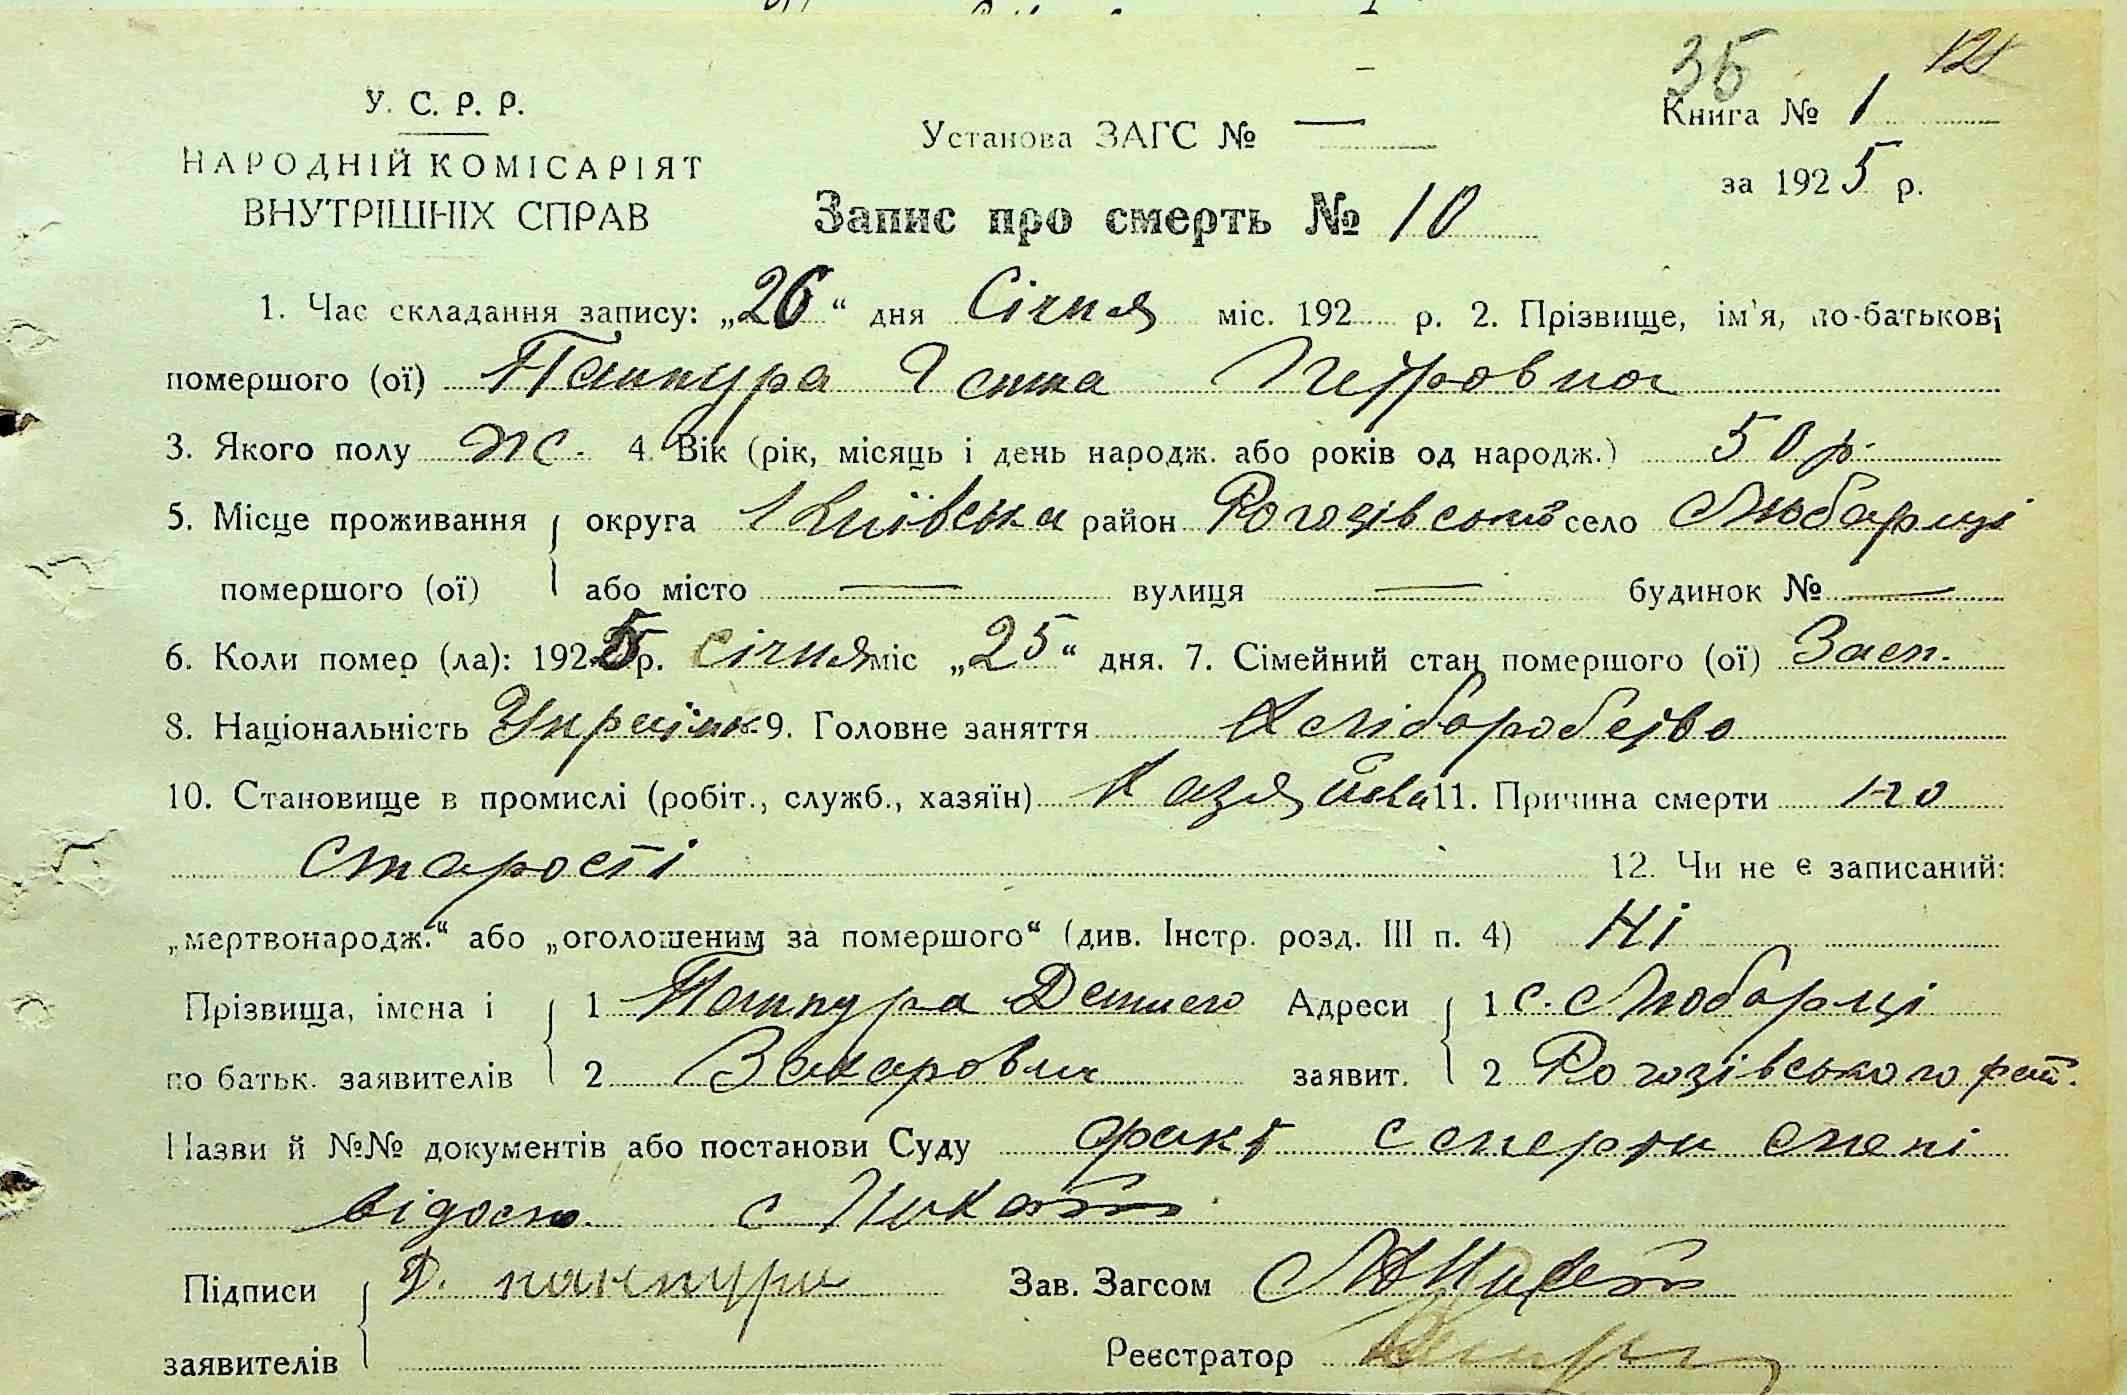 35 12
У. С. Р. Р.
НАРОДНІЙ КОМІСАРІЯТ
ВНУТРІШНІХ СПРАВ
Установа ЗАГС № —
Книга № 1
за 1925 р.
Запис про смерть № 10
1. Час складання запису: „26“ дня Січня міс. 192 р. 2. Прізвище, ім'я, по-батькові
помершого (ої) Панпура Петровна
3. Якого полу ж. 4. Вік (рік, місяць і день народж. або років од народж.) 50 р.
5. Місце проживання округа Київська район Рогозівський село Любарці
помершого (ої) або місто — вулиця — будинок № —
6. Коли помер (ла): 1925 р. Січня міс „25“ дня. 7. Сімейний стан помершого (ої)
8. Національність 9. Головне заняття Хліборобство
10. Становище в промислі (робіт., служб., хазяїн) Хазяйка 11. Причина смерти по
старості
12. Чи не є записаний:
„мертвонародж.“ або „оголошеним за помершого“ (див. Інстр. розд. III п. 4) Ні
Прізвища, імена і 1 Панпура Адреси 1 с. Любарці
по батьк. заявителів 2 Захарович заявит. 2 Рогозівського рай.
Назви й №№ документів або постанови Суду факт смерти мені
відом.
Підписи Д. панпура Зав. Загсом
заявителів Реєстратор